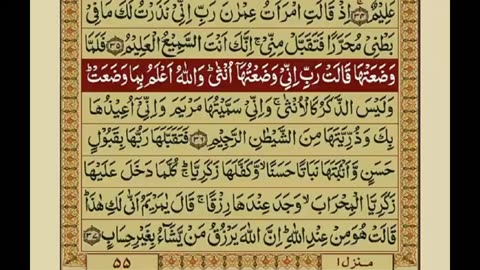 عَلِيْمٌ ﴿۳۴﴾ اِذْ قَالَتِ امْرَاَتُ عِمْرٰنَ رَبِّ اِنِّیْ نَذَرْتُ لَكَ مَا فِیْ
بَطْنِیْ مُحَرَّرًا فَتَقَبَّلْ مِنِّیْ ۚ اِنَّكَ اَنْتَ السَّمِیْعُ الْعَلِیْمُ ﴿۳۵﴾ فَلَمَّا
وَضَعَتْهَا قَالَتْ رَبِّ اِنِّیْ وَضَعْتُهَاۤ اُنْثٰی ؕ وَاللّٰهُ اَعْلَمُ بِمَا وَضَعَتْ ؕ
وَلَیْسَ الذَّكَرُ كَالْاُنْثٰی ۚ وَاِنِّیْ سَمَّیْتُهَا مَرْیَمَ وَاِنِّیْۤ اُعِیْذُهَا
بِكَ وَذُرِّیَّتَهَا مِنَ الشَّیْطٰنِ الرَّجِیْمِ ﴿۳۶﴾ فَتَقَبَّلَهَا رَبُّهَا بِقَبُوْلٍ
حَسَنٍ وَّاَنْۢبَتَهَا نَبَاتًا حَسَنًا ۙ وَّكَفَّلَهَا زَكَرِیَّا ؕ كُلَّمَا دَخَلَ عَلَیْهَا
زَكَرِیَّا الْمِحْرَابَ ۙ وَجَدَ عِنْدَهَا رِزْقًا ۚ قَالَ یٰمَرْیَمُ اَنّٰی لَكِ هٰذَا ؕ
قَالَتْ هُوَ مِنْ عِنْدِ اللّٰهِ ؕ اِنَّ اللّٰهَ یَرْزُقُ مَنْ یَّشَآءُ بِغَیْرِ حِسَابٍ ﴿۳۷﴾
منزل ۱ ۵۵